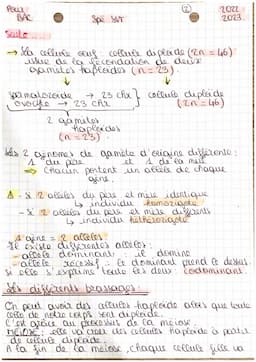 Pour
BAC
Spé SVT
(2)
2022
2023
Suite ....
→ La cellule oeuf : cellule diploïde (2n = 46)
issue de la fécondation de deux
gamètes haploïdes (n = 23).
spermatozoïde → 23 chr
ovocyte → 23 chr
cellule diploïde
(2n = 46)
2 gamètes
haploïdes
(n = 23)
Les 2 génomes de gamète d'origine différente :
1 du père et 1 de la mère
→ chacun portent un allèle de chaque
gène.
- Si 2 allèles du père et mère identique
↳ individu homozygote
- Si 2 allèles du père et mère différents
↳ individu hétérozygote
1 gène = 2 allèles
Il existe différentes allèles :
- allèle dominant : il domine
- allèle récessif : le dominant prend le dessus.
Si elle s'exprime toute les deux : codominant.
Les différents brassages :
On peut avoir des cellules haploïde alors que toute
celle de notre corps sont diploïde.
C'est grâce au processus de la méiose.
MÉIOSE : elle va créer des cellules haploïde à partir
de cellule diploïde.
A la fin de la méiose, chaque cellule fille va